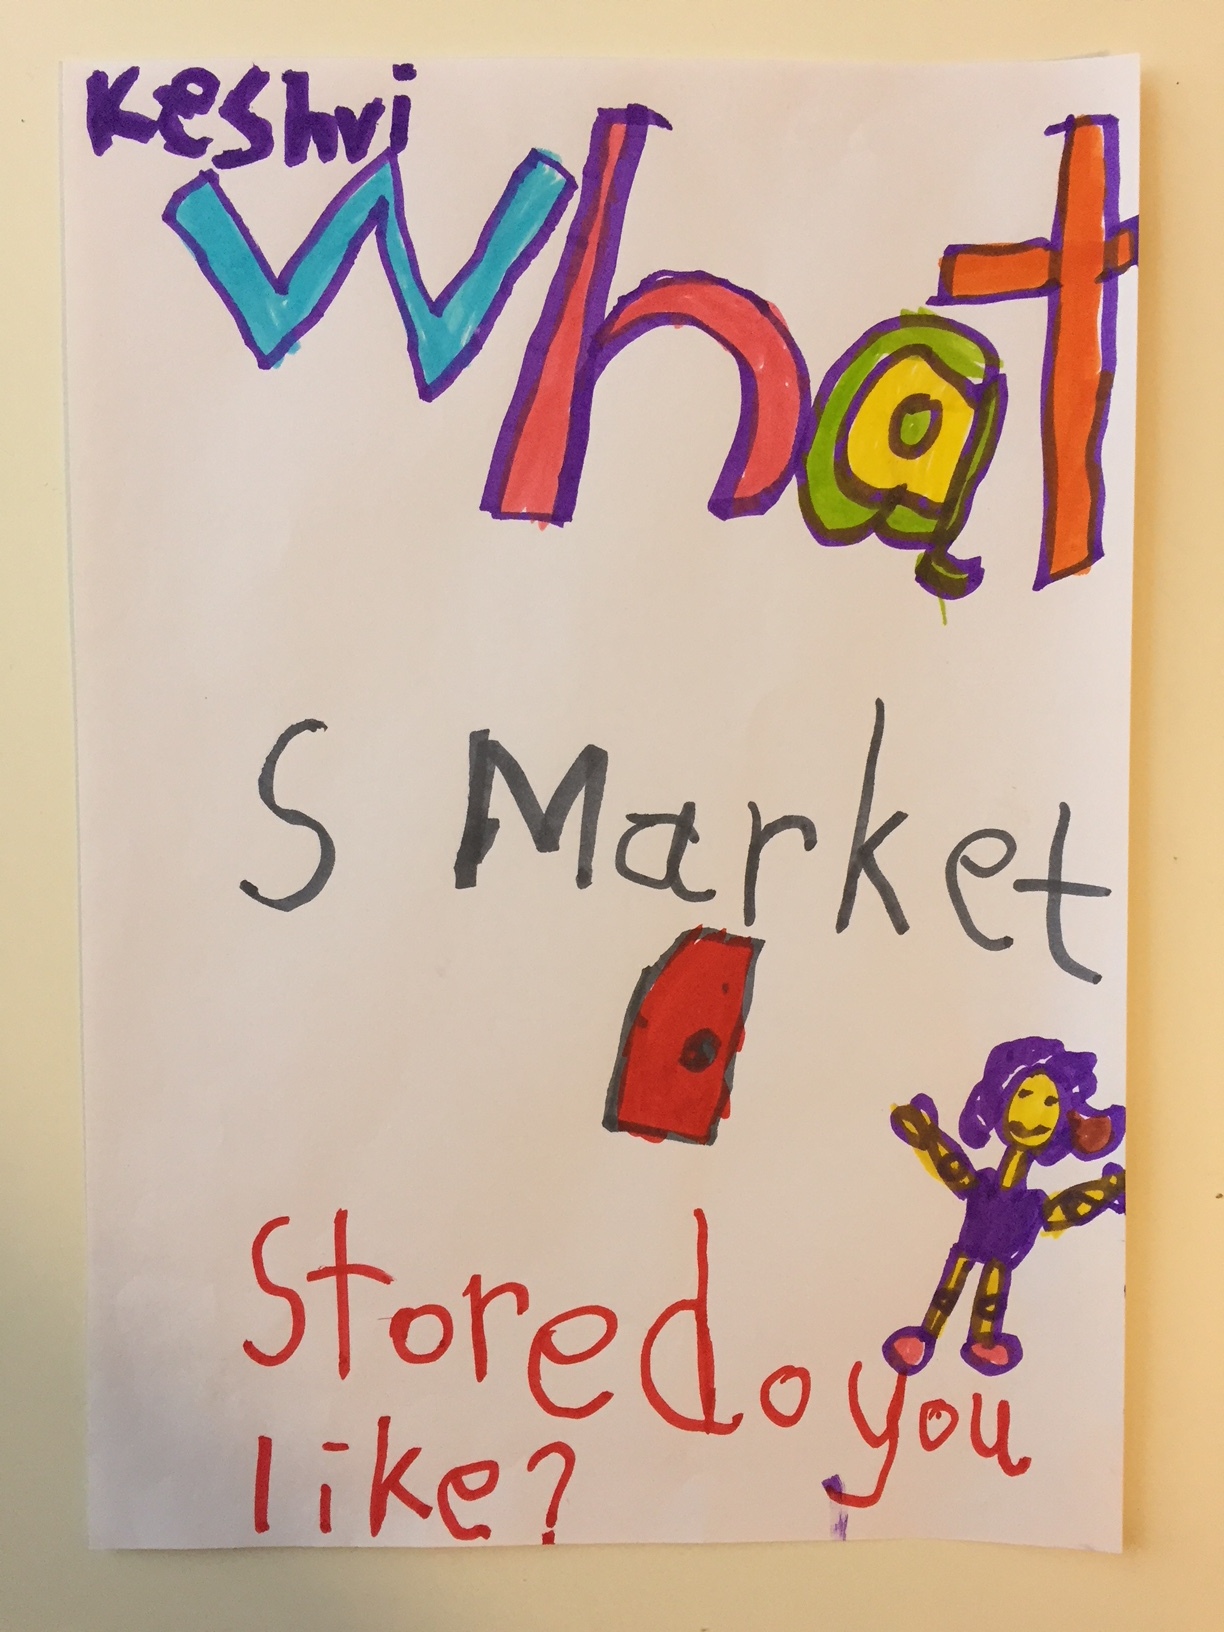 Keshvi
What
S Market
Store do you
like?